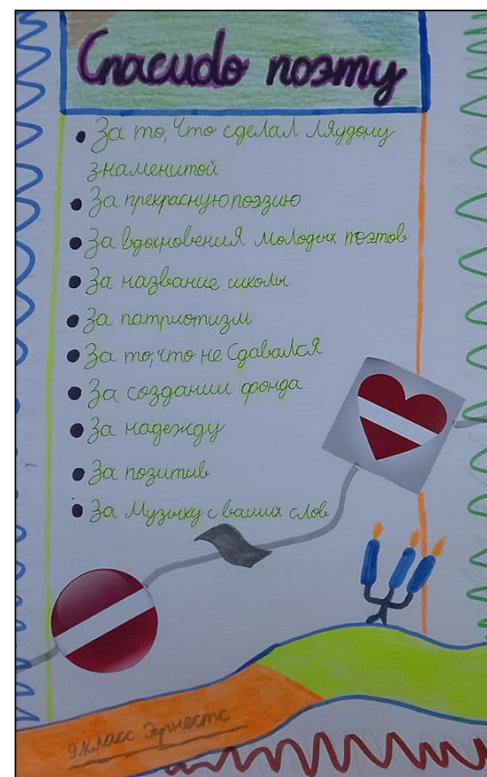 Спасидо поэту
За то, что сделал Ляудону
знаменитой
За прекрасную поэзию
За вдохновения молодых поэтов
За название школы
За патриотизм
За то, что не сдавался
За создании фонда
За надежду
За позитив
За Музыку с ваших слов
9.класс Эрнестс